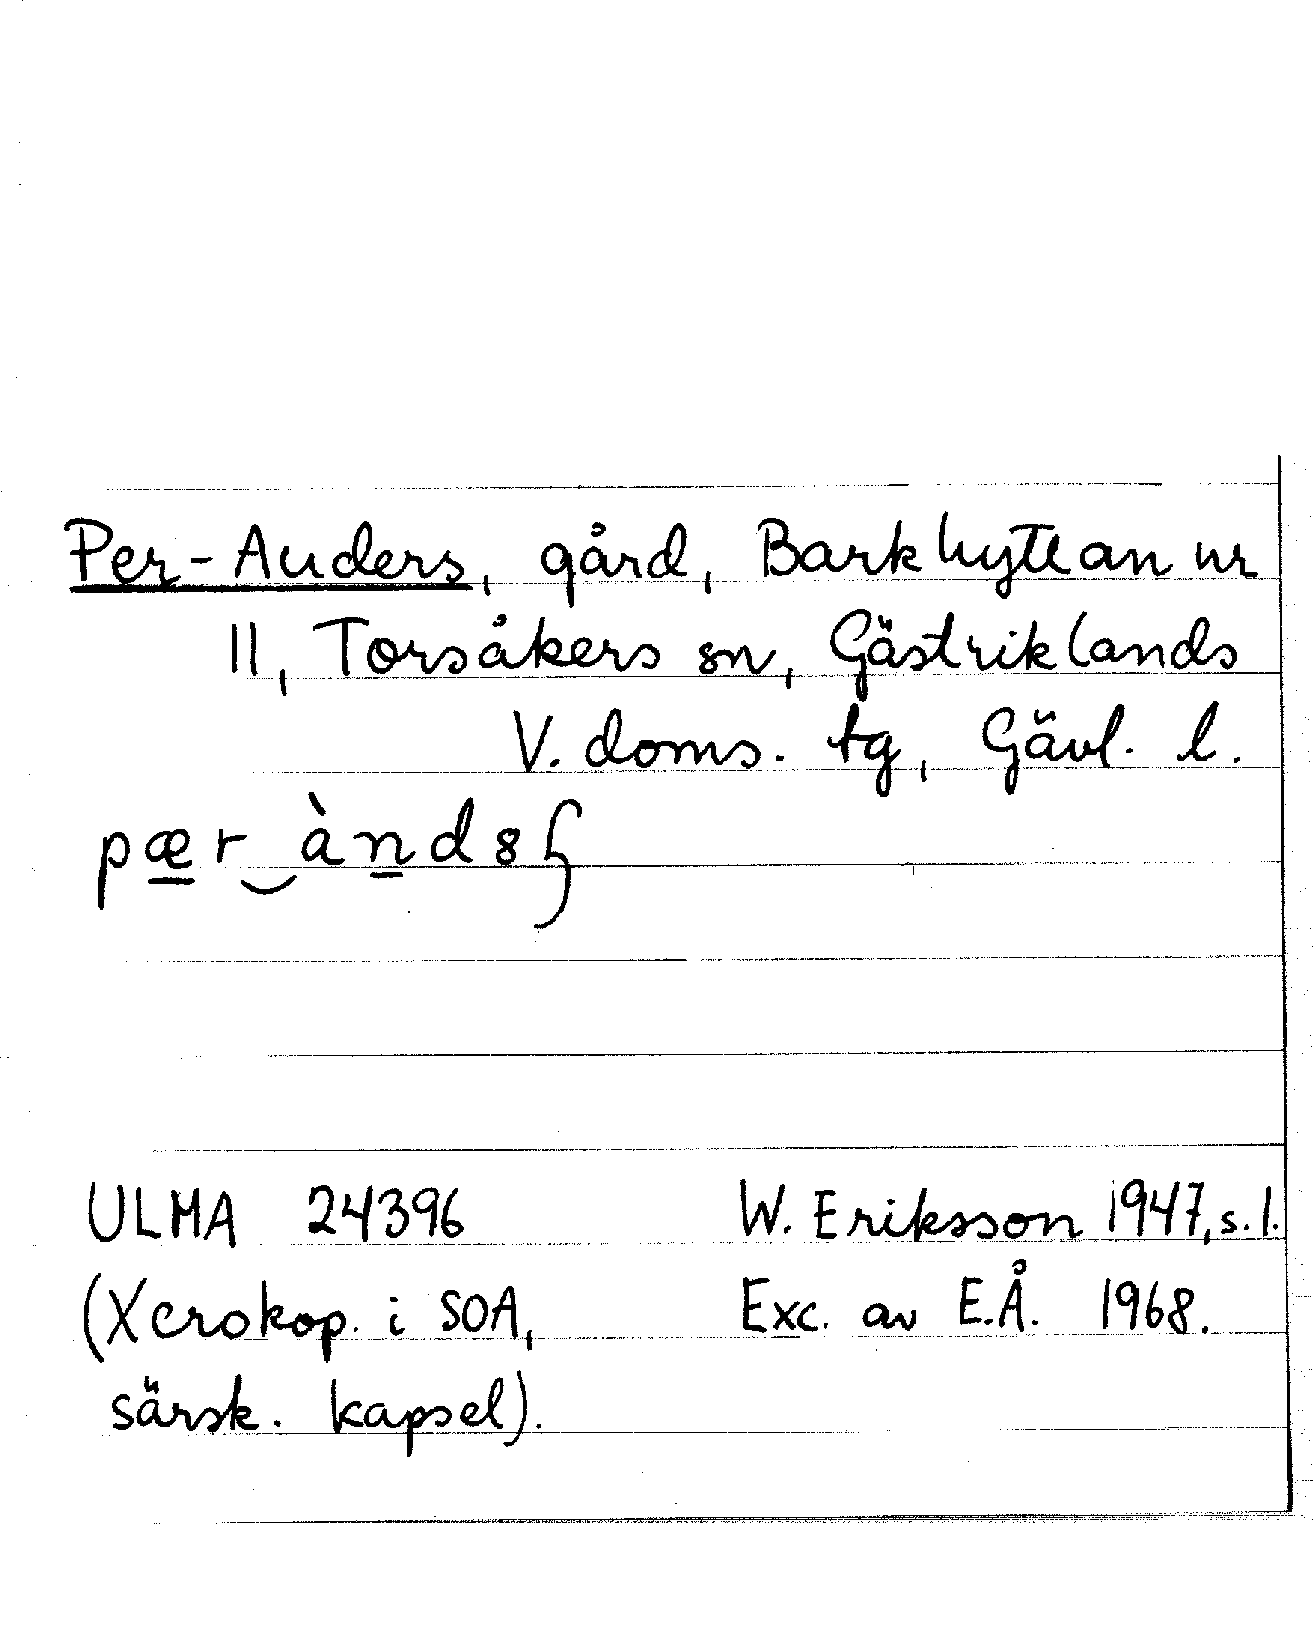 Per-Anders, gård, Barkhyttan nr
11, Torsåkers sn, Gästriklands
V. doms. tg, Gävl. l.
ULMA 24396 W. Eriksson 1947, s. 1.
(Xerokop. i SOA, Exc. av E.Å. 1968.
särsk. kapsel).